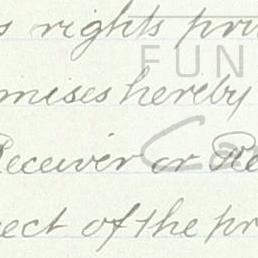 s rights pri
FUN
mises hereby
Receiver or Re
Ca
ect of the pr